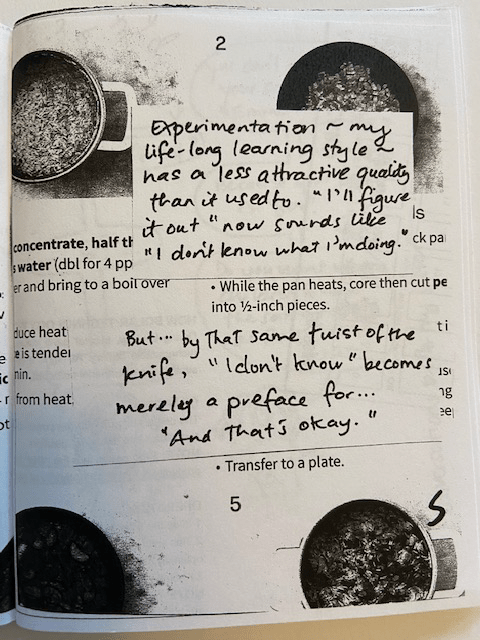 2
Experimentation ~ my
life-long learning style ~
has a less attractive quality
than it used to. "I'll figure
it out" now sounds like
"I don't know what I'm doing."
ls
ck pa
concentrate, half th
s water (dbl for 4 pp
er and bring to a boil over
• While the pan heats, core then cut pe
into ½-inch pieces.
duce heat
e is tender
min.
from heat.
ti
But... by that same twist of the
knife, "I don't know" becomes
merely a preface for...
"And that's okay."
ng
• Transfer to a plate.
5
S